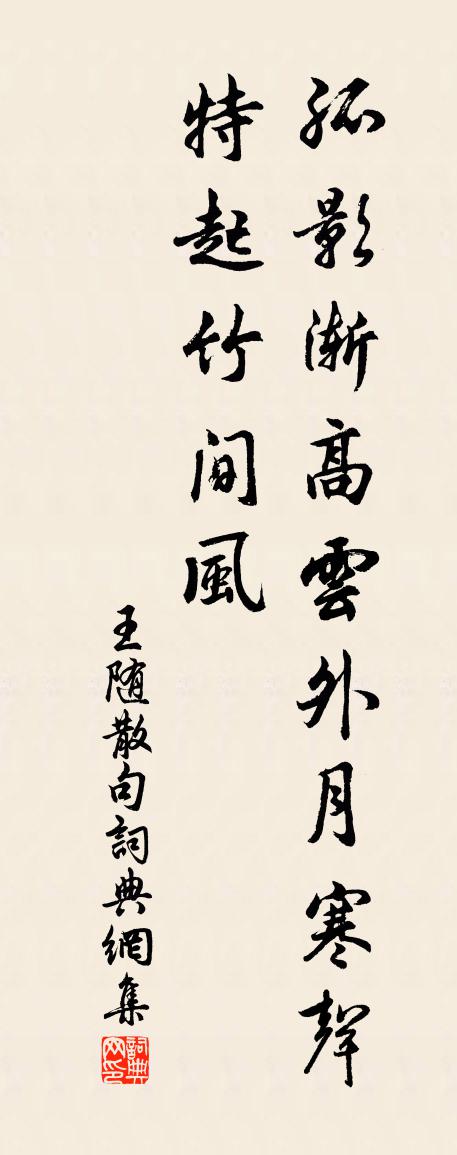 孤影漸高雲外月寒聲
特起竹間風
王随散句詞典網集
詞典网印